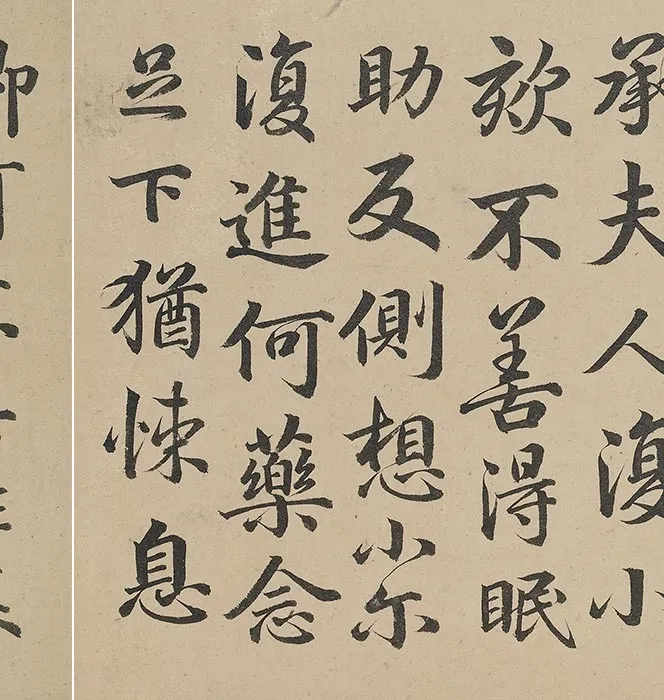 承夫人復小
欬不善得眠
助反側想小尔
復進何藥念
足下猶悚息